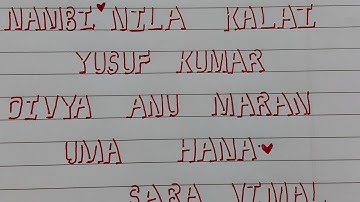 NAMBI♥NILA KALAI
YUSUF KUMAR
DIVYA ANU MARAN
UMA HANA♥
SARA VIMAL